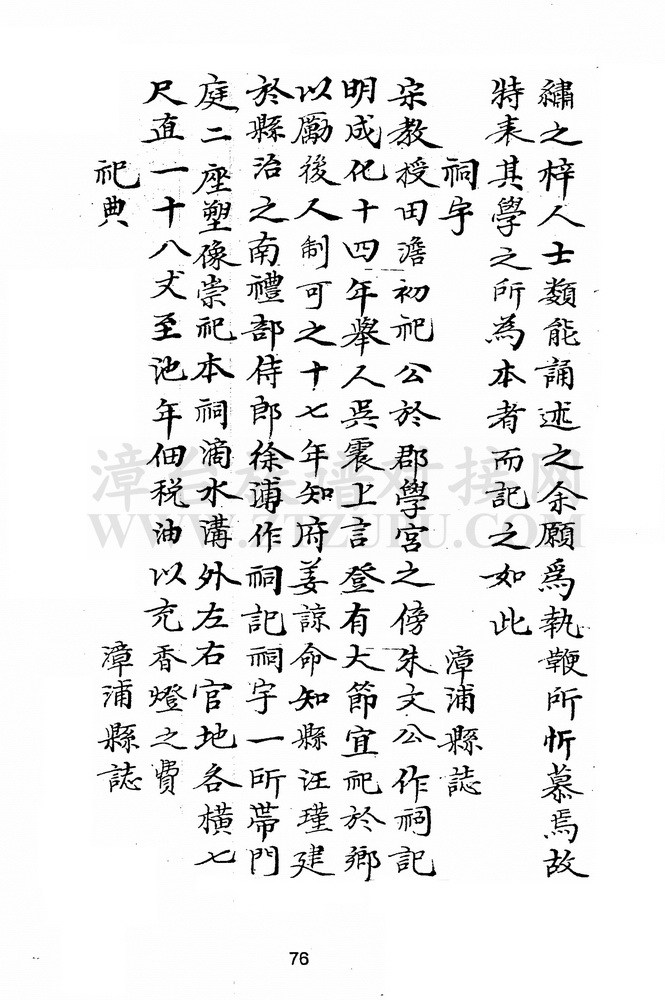 繡之梓人士類能誦述之余願爲執鞭所忻慕焉故
特表其學之所為本者而記之如此
祠宇 漳浦縣誌
宗教授田澹初祀公於郡學宮之傍朱文公作祠記
明成化十四年舉人吳震上言登有大節宜祀於鄉
以勵後人制可之十七年知府姜諒命知縣汪瑾建
於縣治之南禮部侍郎徐浦作祠記祠宇一所帶門
庭二座塑像崇祀本祠滴水溝外左右官地各橫七
尺直一十八丈至池年佃税油以充香燈之費
祀典 漳浦縣誌
漳台族譜对接网
WWW.ZTZUPU.COM
76